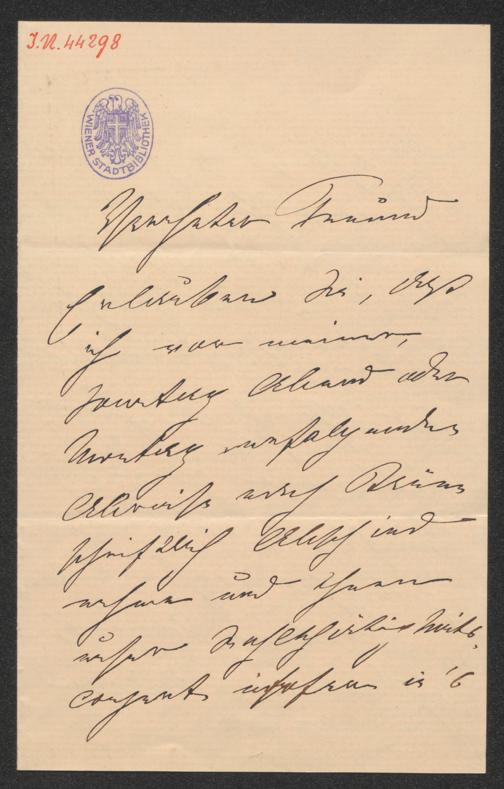 I.N. 44298
WIENER STADTBIBLIOTHEK
Verehrter Freund
Erlauben Sie, daß
ich vor meiner,
Sonntag Abend oder
Montag erfolgenden
Abreise nach Brünn
schriftlich Abschied
nehme und Ihnen
unser
insofern